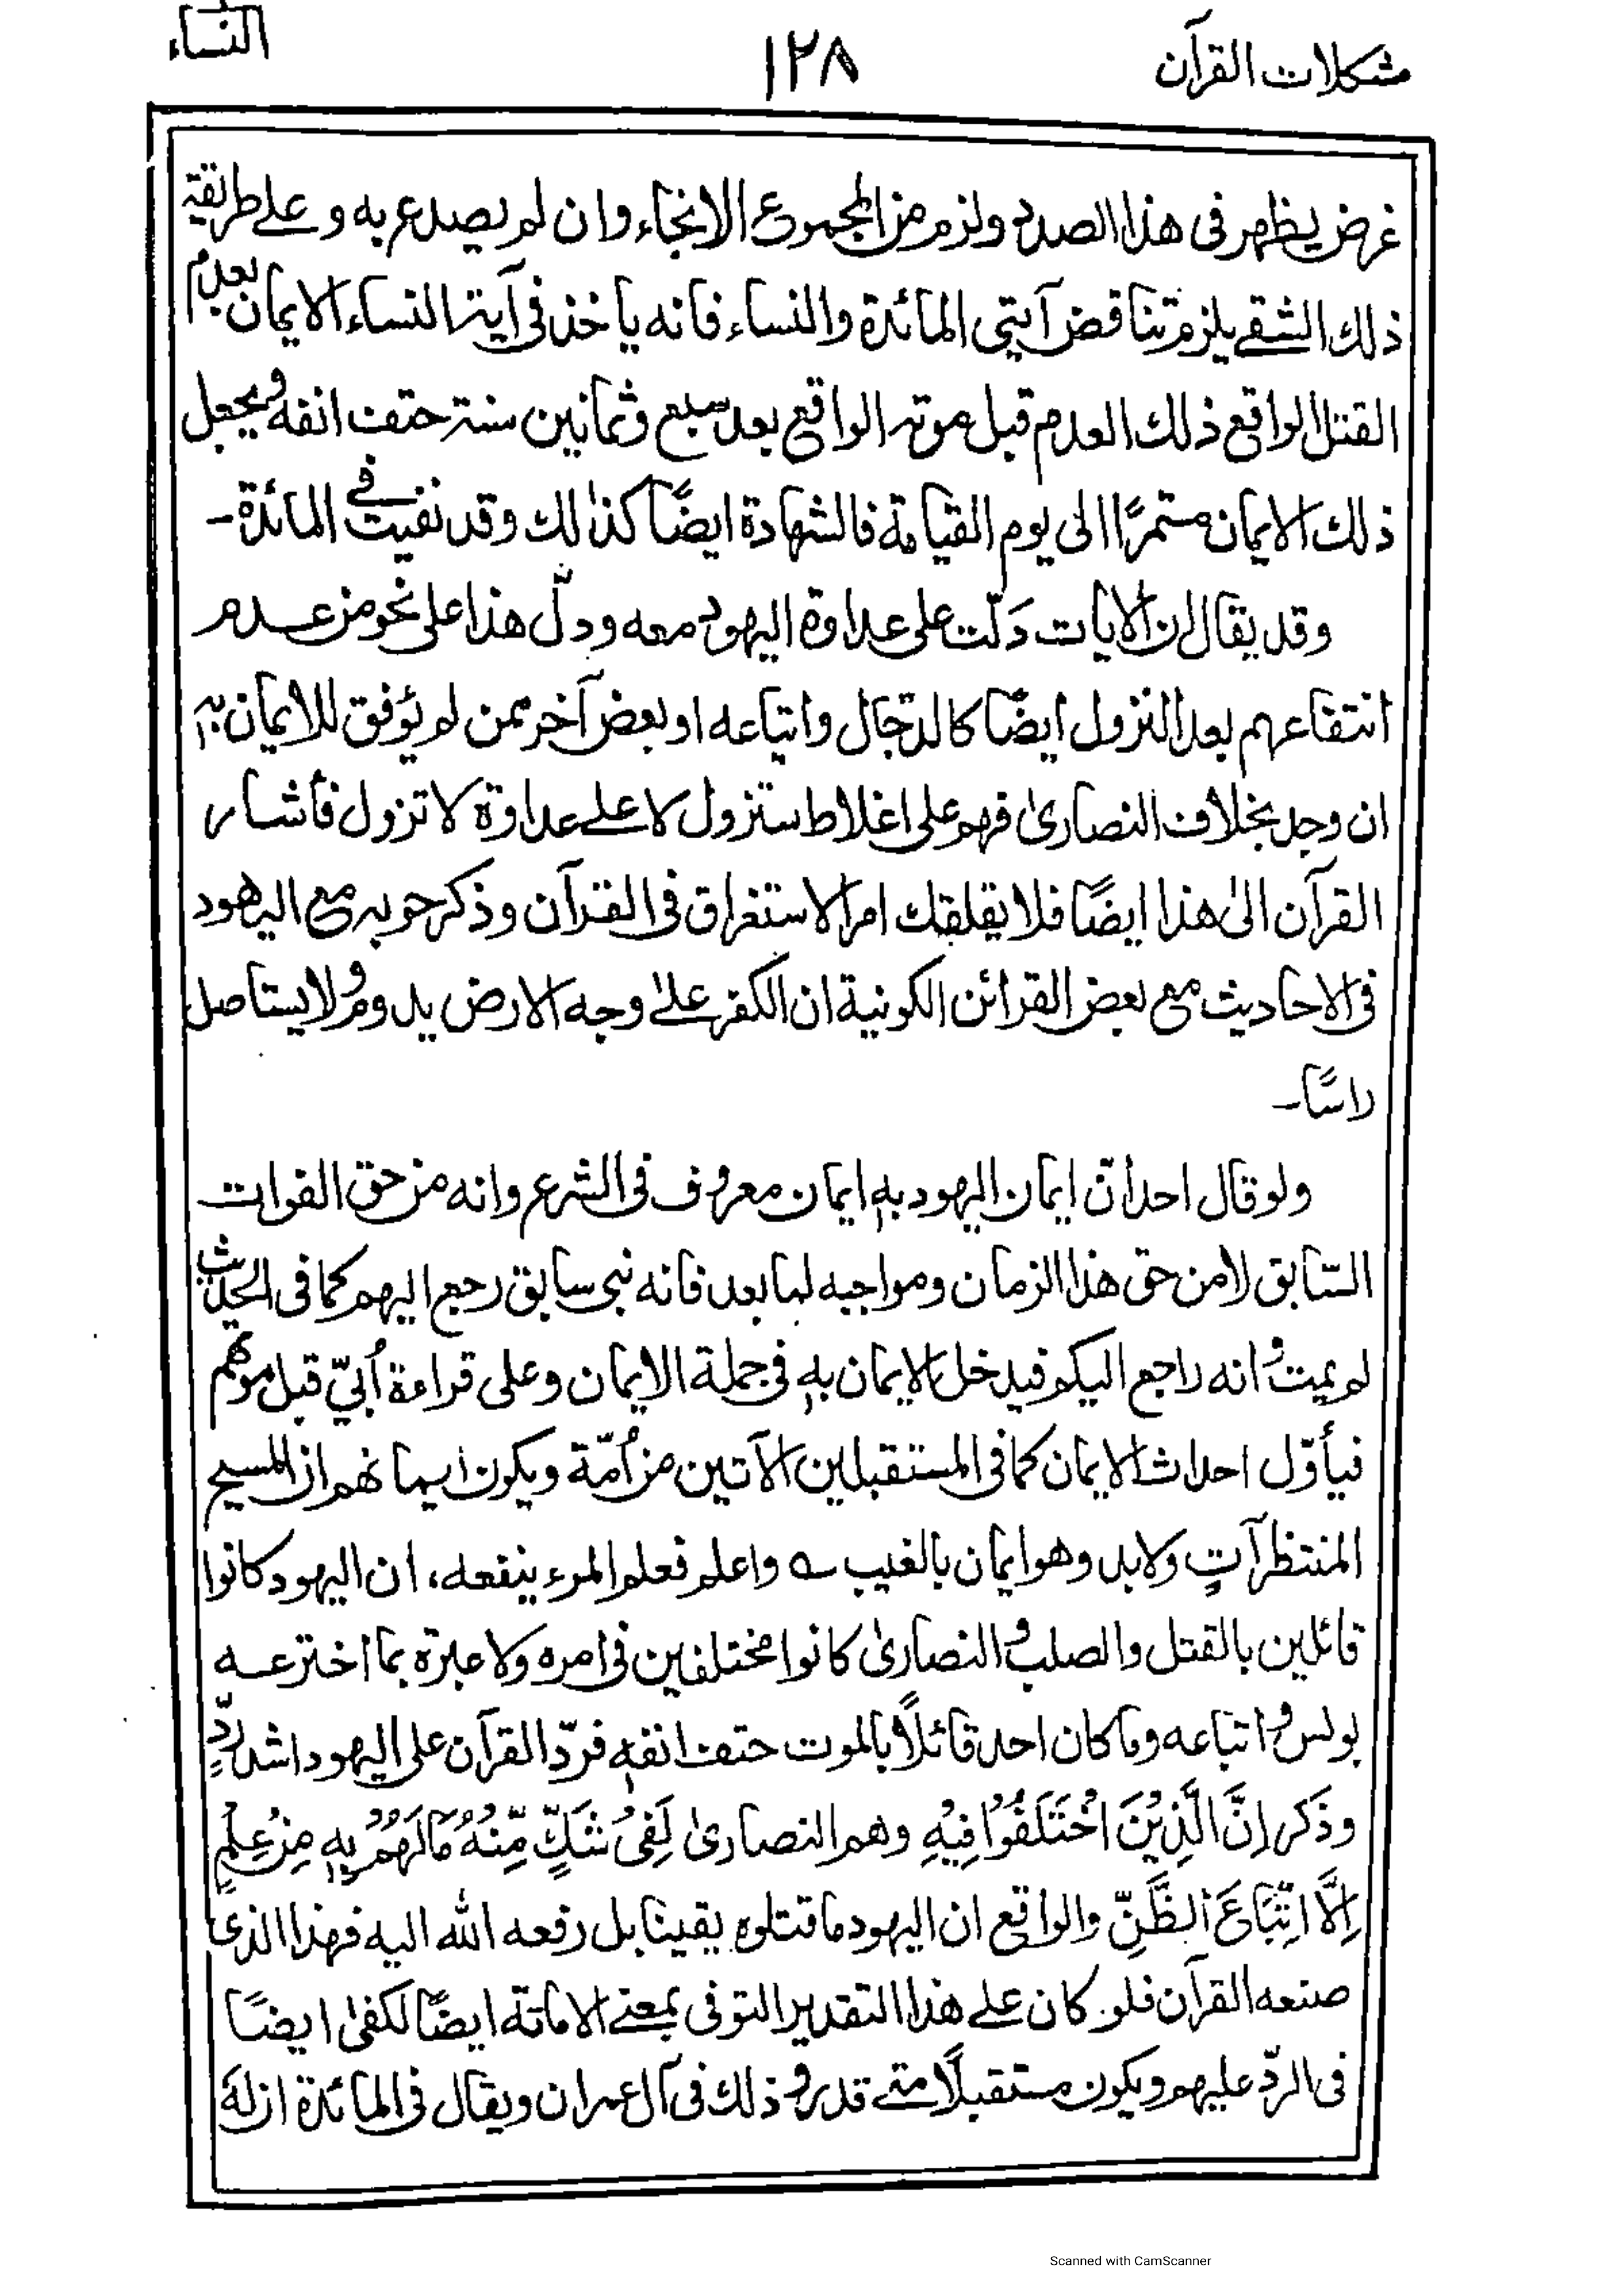 مشكلات القرآن
١٢٨
النساء
غرض يظهر في هذا الصدد ولزم من المجموع الانجاء وان لم يصدع به وعلى طريقة
ذلك الشقي يلزم تناقض آيتي المائدة والنساء فانه ياخذ في آية النساء الايمان بعدم
القتل الواقع ذلك العدم قبل موته الواقع بعد سبع وثمانين سنة حتف انفه ويجعل
ذلك الايمان مستمرًا الى يوم القيامة فالشهادة ايضًا كذالك وقد نفيت في المائدة۔
وقد يقال ان الايات دَلّت على عداوة اليهود معه ودلّ هذا على نحو من عدم
انتفاعهم بعد النزول ايضًا كالدّجال واتباعه او بعض آخر ممن لم يؤفق للايمان به
ان وجد بخلاف النصارىٰ فهم على اغلاط ستزول لا على عداوة لا تزول فأشار
القرآن الىٰ هذا ايضًا فلا يقلقك امر الاستغراق في القرآن وذكر حوبه مع اليهود
في الاحاديث مع بعض القرائن الكونية ان الكفر علىٰ وجه الارض يدوم ولا يستاصل
راسًا۔
ولو قال احد أنّ ايمان اليهود به ايمان معروف في الشرع وانه من حق الفوات
السّابق لا من حق هذا الزمان ومواجبه لما بعد فانه نبي سابق رجع اليهم كما في الحديث
لم يمت وانه راجع اليكم فيدخل الايمان به في جملة الايمان وعلى قراءة أُبيّ قبل موتهم
فيأوّل احداث الايمان كما في المستقبلين الآتين من أُمّة ويكون ايمانهم ان المسيح
المنتظر آتٍ ولا بد وهو ايمان بالغيب ؎ واعلم فعلم المرء ينفعه، ان اليهود كانوا
قائلين بالقتل والصلب والنصارىٰ كانوا مختلفين في امره ولا عبرة بما اخترعه
بولس واتباعه وما كان احد قائلًا بالموت حتف انفه فردّ القرآن على اليهود اشد ردٍّ
وذَكر اِنَّ الَّذِيْنَ اخْتَلَفُوْا فِيْهِ وهم النصارىٰ لَفِيْ شَكٍّ مِّنْهُ مَا لَهُمْ بِهٖ مِنْ عِلْمٍ
اِلَّا اتِّبَاعَ الظَّنِّ والواقع ان اليهود ما قتلوه يقينا بل رفعه الله اليه فهذا الذي
صنعه القرآن فلو كان على هذا التقدير التوفي بمعنى الاماتة ايضًا لكفىٰ ايضًا
في الردّ عليهم ويكون مستقبلًا متى قدر وذلك في آل عمران ويقال في المائدة ان له
Scanned with CamScanner